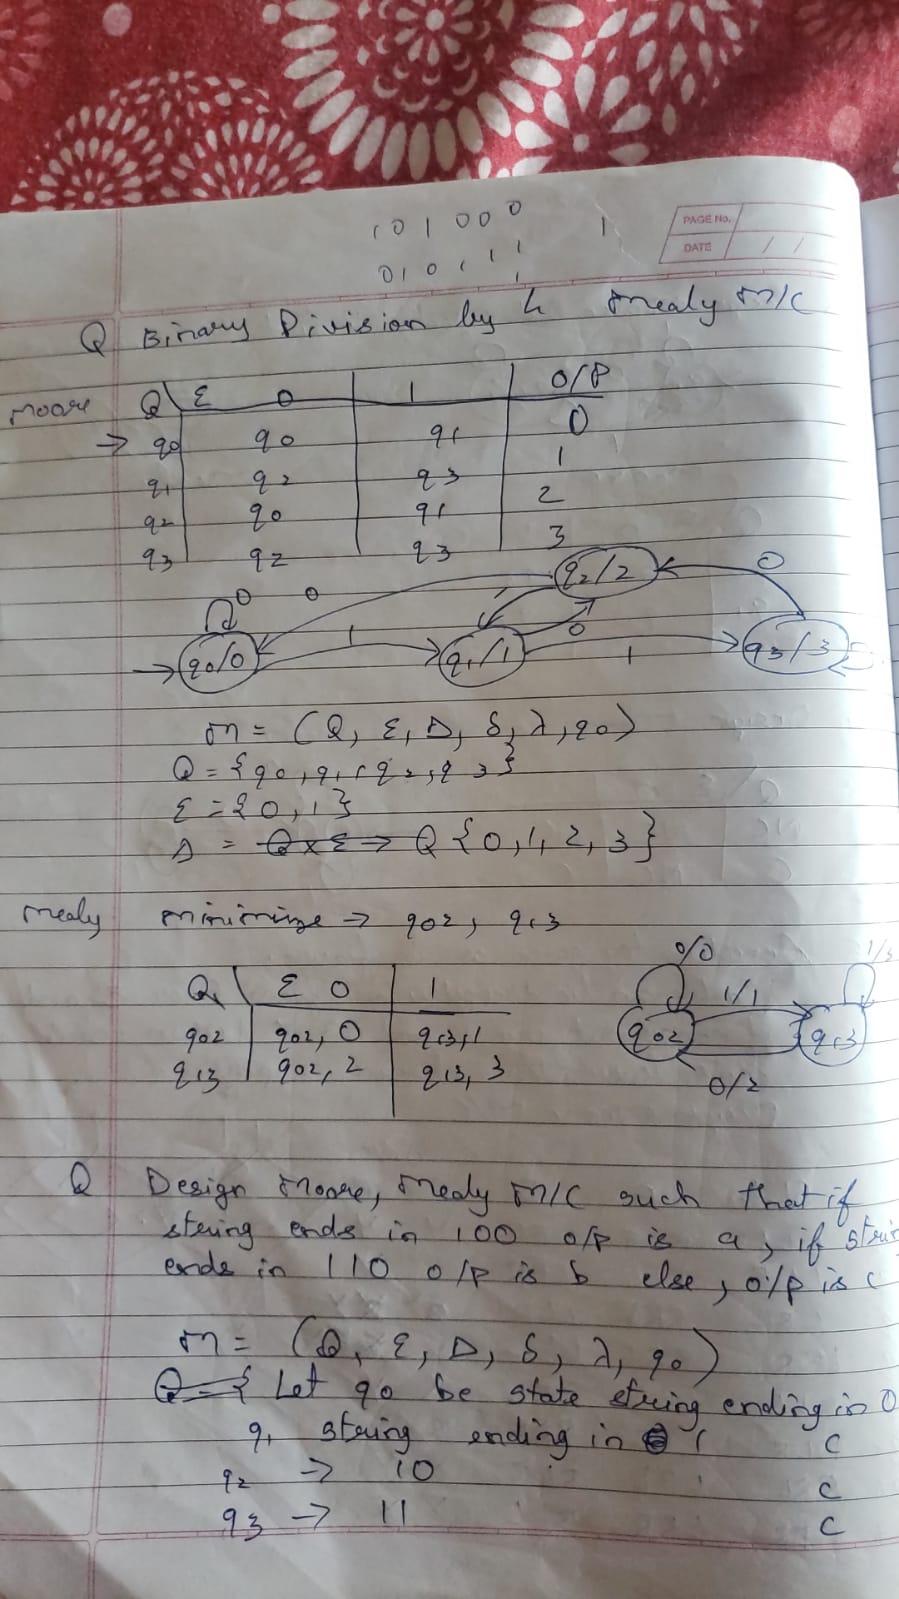 101000 1
PAGE No.
DATE / /
010111
Q Binary Division by 4 Mealy M/C
Moore Q \ Σ 0 1 O/P
→ q0 q0 q1 0
q1 q2 q3 1
q2 q0 q1 2
q3 q2 q3 3
q2/2 0
0 0 1
q0/0 1 q1/1 0 1 q3/3
M = (Q, Σ, Δ, δ, λ, q0)
Q = {q0, q1, q2, q3}
Σ = {0, 1}
Δ = Q x Σ → Q {0, 1, 2, 3}
Mealy minimize → q02, q13
0/0 1/3
Q \ Σ 0 1 1/1
q02 q02, 0 q13, 1 q02 q13
q13 q02, 2 q13, 3
0/2
Q Design Moore, Mealy M/C such that if
string ends in 100 o/p is a, if
ends in 110 o/p is b else, o/p is c
M = (Q, Σ, Δ, δ, λ, q0)
Q = { Let q0 be state string ending in 0
q1 string ending in 1 C
q2 → 10 C
q3 → 11 C